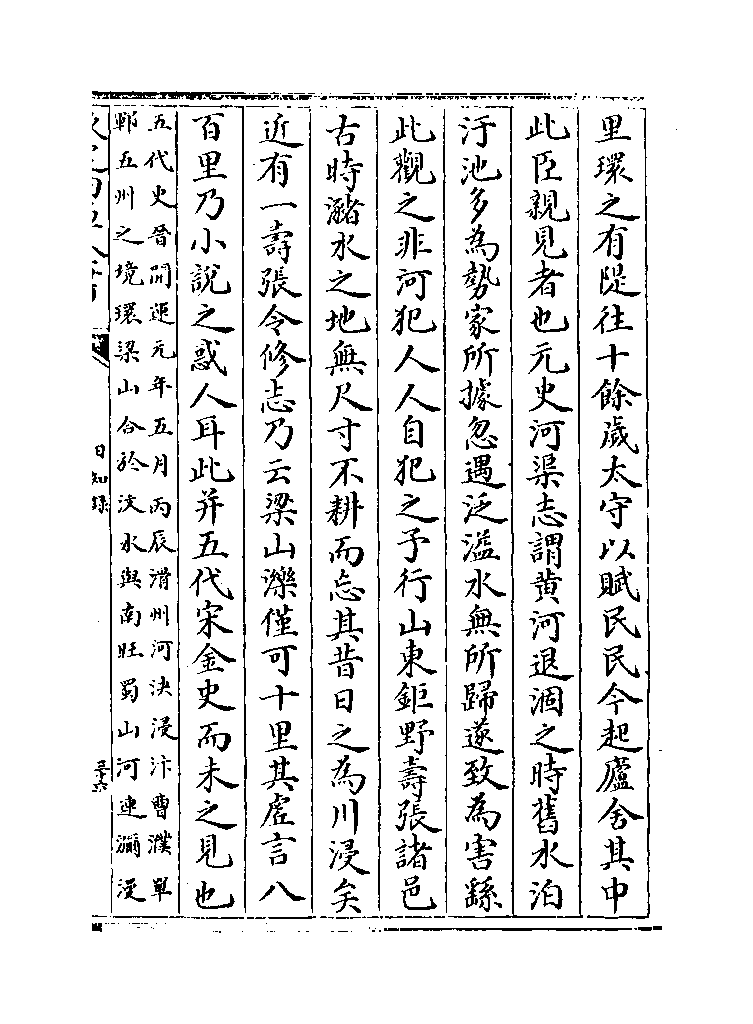 里環之有隄往十餘歲太守以賦民民今起廬舍其中
此臣親見者也元史河渠志謂黄河退涸之時舊水泊
汙池多為勢家所據忽遇泛溢水無所歸遂致為害繇
此觀之非河犯人人自犯之予行山東鉅野壽張諸邑
古時瀦水之地無尺寸不耕而忘其昔日之為川浸矣
近有一壽張令修志乃云梁山濼僅可十里其虚言八
百里乃小說之惑人耳此并五代宋金史而未之見也
五代史晉開運元年五月丙辰滑州河決浸汴曹濮單
鄆五州之境環梁山合於汶水與南旺蜀山河連瀰漫
日知錄